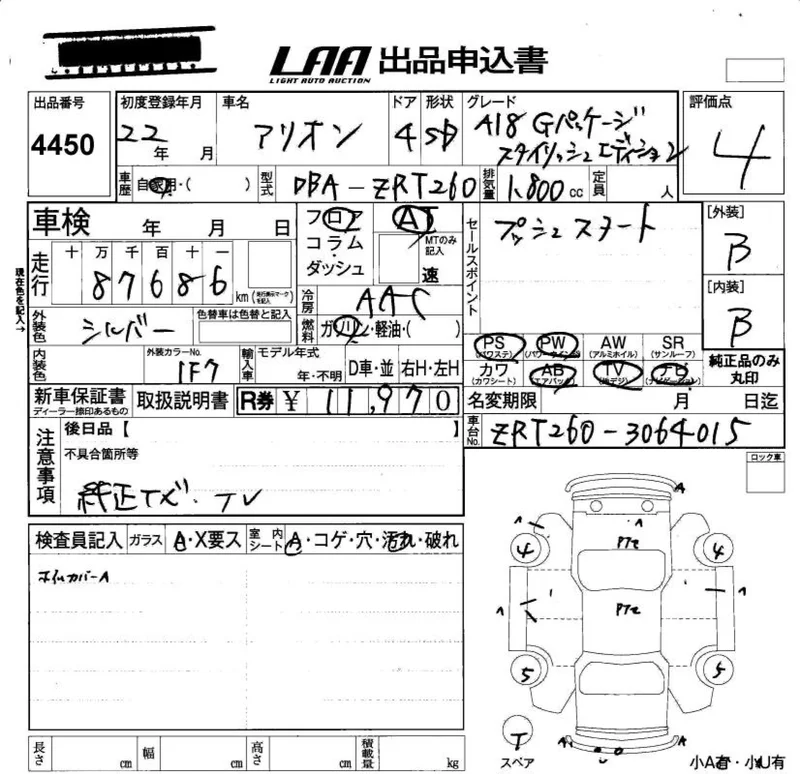 LAA 出品申込書
LIGHT AUTO AUCTION
出品番号 初度登録年月 車名 ドア 形状 グレード 評価点
4450 22年 月 アリオン 4 SD A18 Gパッケージ
スタイリッシュエディション 4
車歴 自家用・( ) 型式 DBA-ZRT260 排気量 1,800cc 定員 人
車検 年 月 日 フロア AT セールスポイント プッシュスタート [外装]
コラム・ MTのみ記入 B
ダッシュ 速
現在色を記入→ 走行 十 万 千 百 十 一
87686 km (走行表示マークを記入) 冷房 AAC [内装]
外装色 シルバー 色替車は色替と記入 燃料 ガソリン・軽油・( ) B
PS (パワステ) PW (パワーウインド) AW (アルミホイル) SR (サンルーフ)
内装色 外装カラーNo. 1F7 輸入車 モデル年式 年・不明 D車・並 右H・左H カワ (カワシート) AB (エアバッグ) TV (地デジ) ナビ (ナビゲーション) 純正品のみ丸印
新車保証書 ディーラー捺印あるもの 取扱説明書 R券 ¥ 11,970 名変期限 月 日迄
注意事項 後日品【 】 車台No. ZRT260-3064015
不具合箇所等 ロック車
純正ナビ・TV
検査員記入 ガラス A・X要ス 室内シート A・コゲ・穴・汚れ・破れ
ホイルカバーA
A
4 4
5 5
T
スペア
長さ cm 幅 cm 高さ cm 積載量 kg 小A有・小U有